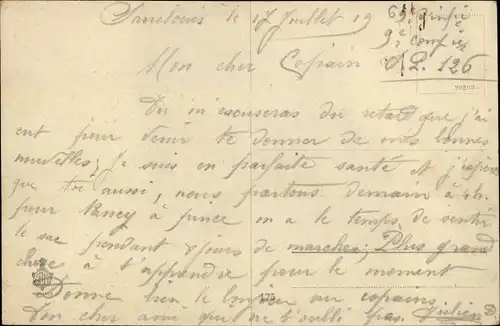 Sanlouis le 17 juillet 19
69e
9e comp ie
S P. 126
Mon cher Copain
Du m'escuseras du retard que j'ai
ent pour venir te donner de mes bonnes
nouvelles; Je suis en parfaite santé et j'espère
que toi aussi, nous partons demain à 4h.
pour Nancy à pince on a le temps de sentir
le sac pendant 8 jours de marches; Plus grand
chose à t'apprendre pour le moment
Donne bien le bonjour au copains
Ton cher ami que ne t'oubli pas. Julien